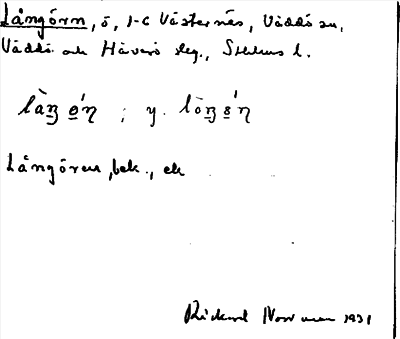 Långörn, ö, 1-C Västernäs, Väddö sn,
Väddö och Häverö slg., Sthlms l.
làŋ ø'η ; y. lòŋ ø'η
Långören, bek., ek
Rickard Norrman 1931